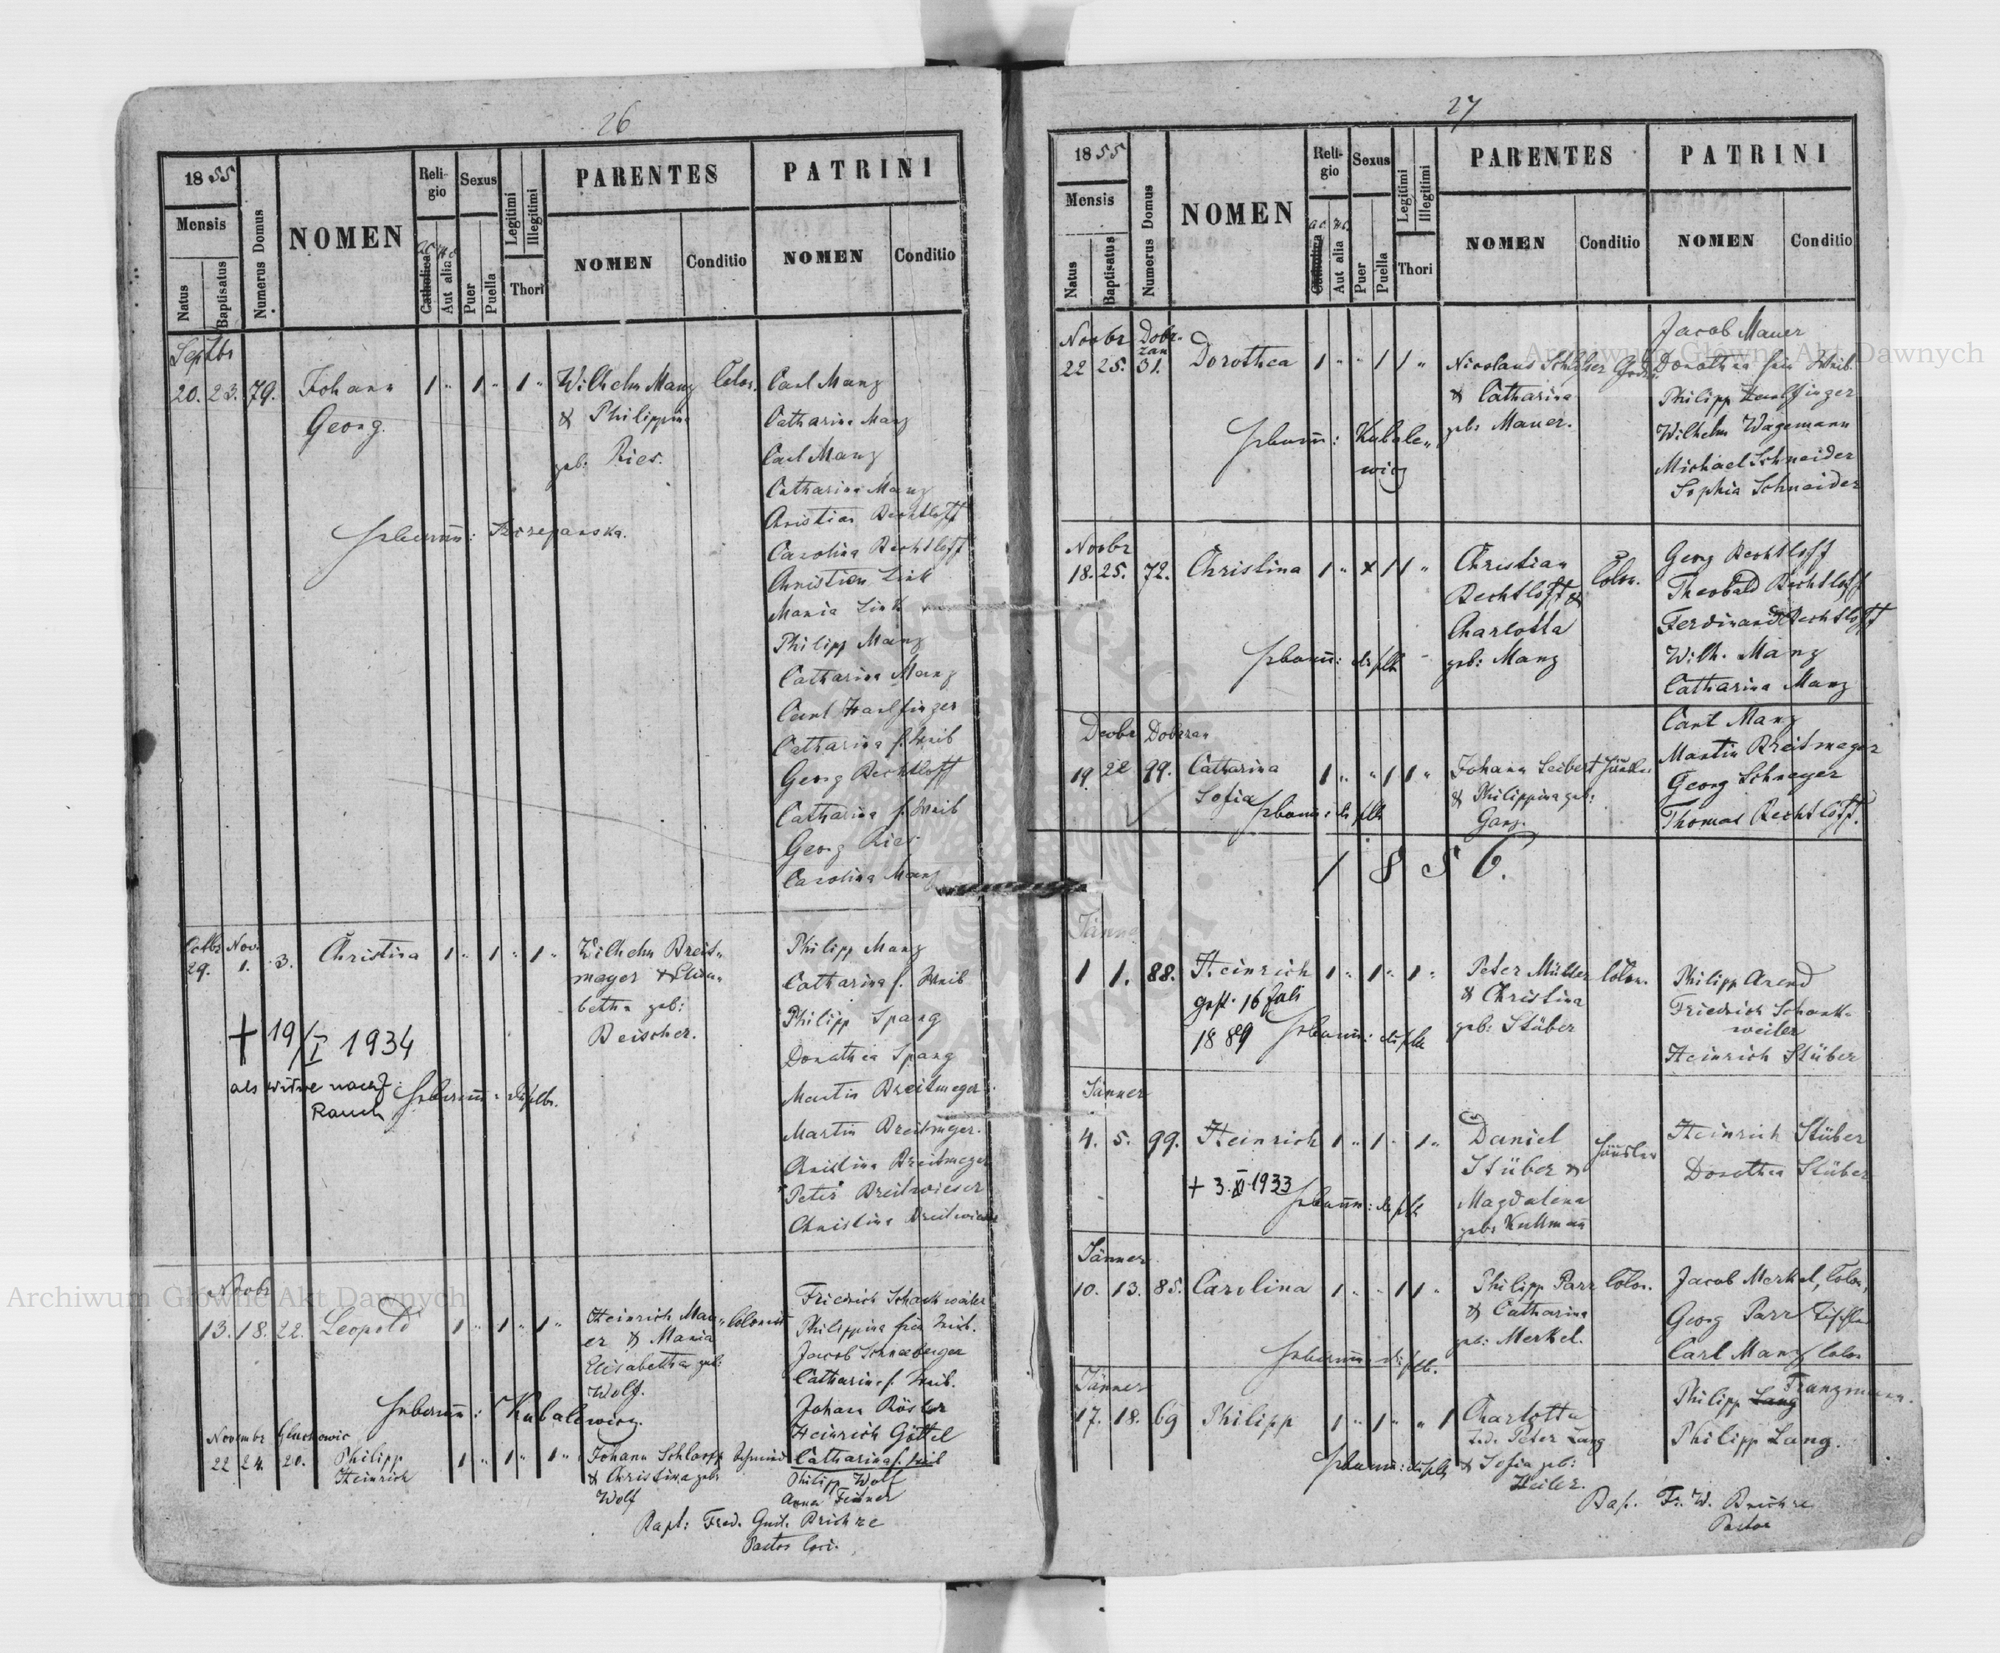 26
1855
Mensis
Natus
Baptisatus
Numerus Domus
NOMEN
Religio
Catholica
Aut alia
Sexus
Puer
Puella
Legitimi
Illegitimi
Thori
PARENTES
NOMEN
Conditio
PATRINI
NOMEN
Conditio
Septbr
20. 23. 79. Johann 1 " 1 " 1 " Wilhelm Manz Colon. Carl Manz
Georg. & Philippina Catharina Manz
geb: Ries. Carl Manz
Catharina Manz
Christian Bechtloff
Hebamm: Szczepanska.
Carolina Bechtloff
Christian Link
Maria Link
Philipp Manz
Catharina Manz
Carl Harlfinger
Catharina s. Weib
Georg Bechtloff
Catharina s. Weib
Georg Ries
Carolina Manz
Octbr Nov.
29. 1. 3. Christina 1 " 1 " 1 " Wilhelm Breit-
mayer & Elisa-
betha geb:
Beischer.
Philipp Manz
Catharina s. Weib
Philipp Spang
Dorothea Spang
+ 19/I 1934
als Witwe nach
Rauch
Hebamm: dieselbe.
Martin Breitmeyer
Martin Breitmeyer.
Christina Breitmeyer
Peter Breitwieser
Christina Breitwieser
Novbr
13. 18. 22. Leopold 1 " 1 " 1 " Heinrich Mau- Colonist
er & Maria
Elisabetha geb:
Wolf.
Friedrich Schankweiler
Philippina sein Weib.
Jacob Schneeberger
Catharina s. Weib.
Johan Rösler
Heinrich Göttel
Catharina s. Weib
Hebamm: Kubalewicz.
Novembr
22 24. 20. Philipp 1 " 1 " 1 " Johann Schlarp
Heinrich & Christina geb:
Wolf
Philipp Wolf
Bapt: Fred. Gust.
Pastor
27
1855
Mensis
Natus
Baptisatus
Numerus Domus
NOMEN
Religio
Catholica
Aut alia
Sexus
Puer
Puella
Legitimi
Illegitimi
Thori
PARENTES
NOMEN
Conditio
PATRINI
NOMEN
Conditio
Novbr Dobr-
zan
22 25. 31. Dorothea 1 " " 1 1 " Nicolaus
& Catharina
geb: Mauer.
Jacob Mauer
Dorothea sein Weib.
Philipp Harlfinger
Wilhelm Wagemann
Michael Schneider
Sophia Schneider
Hebamm: Kubale-
wicz
Novbr
18. 25. 72. Christina 1 " x 1 1 " Christian Colon.
Bechtloff &
Charlotta
geb: Manz
Georg Bechtloff
Theobald Bechtloff
Ferdinand Bechtloff
Wilh. Manz
Catharina Manz
Hebamm: dieselbe
Decbr Dobrzan
19. 22 99. Catharina 1 " " 1 1 " Johann Seibert
Sofia & Philippina geb:
Ganz.
Hebamm: dieselbe
Carl Manz
Martin Breitmayer
Georg Schneyer
Thomas Bechtloff.
1856.
Jänner
1 1. 88. Heinrich 1 " 1 " 1 " Peter Müller Colon.
& Christina
geb: Stüber
gest. 16 Juli
1889
Hebamm: dieselbe
Philipp Arend
Friedrich Schank-
weiler
Heinrich Stüber
Jänner
4. 5. 99. Heinrich 1 " 1 " 1 " Daniel Häusler
Stüber &
Magdalena
geb: Kullmann
Heinrich Stüber
Dorothea Stüber
+ 3.XI.1933
Hebamm: dieselbe
Jänner
10. 13. 85. Carolina 1 " " 1 1 " Philipp Parr Colon.
& Catharina
geb: Merkel.
Jacob Merkel, Colon,
Georg Parr Tischler
Carl Manz Colon
Hebamm: dieselbe.
Jänner
17. 18. 69 Philipp 1 " 1 " " 1 Charlotta
Peter Lang
& Sofia geb:
Heiler.
Philipp Lang Franzmann.
Philipp Lang.
Hebamm: dieselbe
Bap. Fr. W.
Pastor
Archiwum Główne Akt Dawnych
Archiwum Główne Akt Dawnych